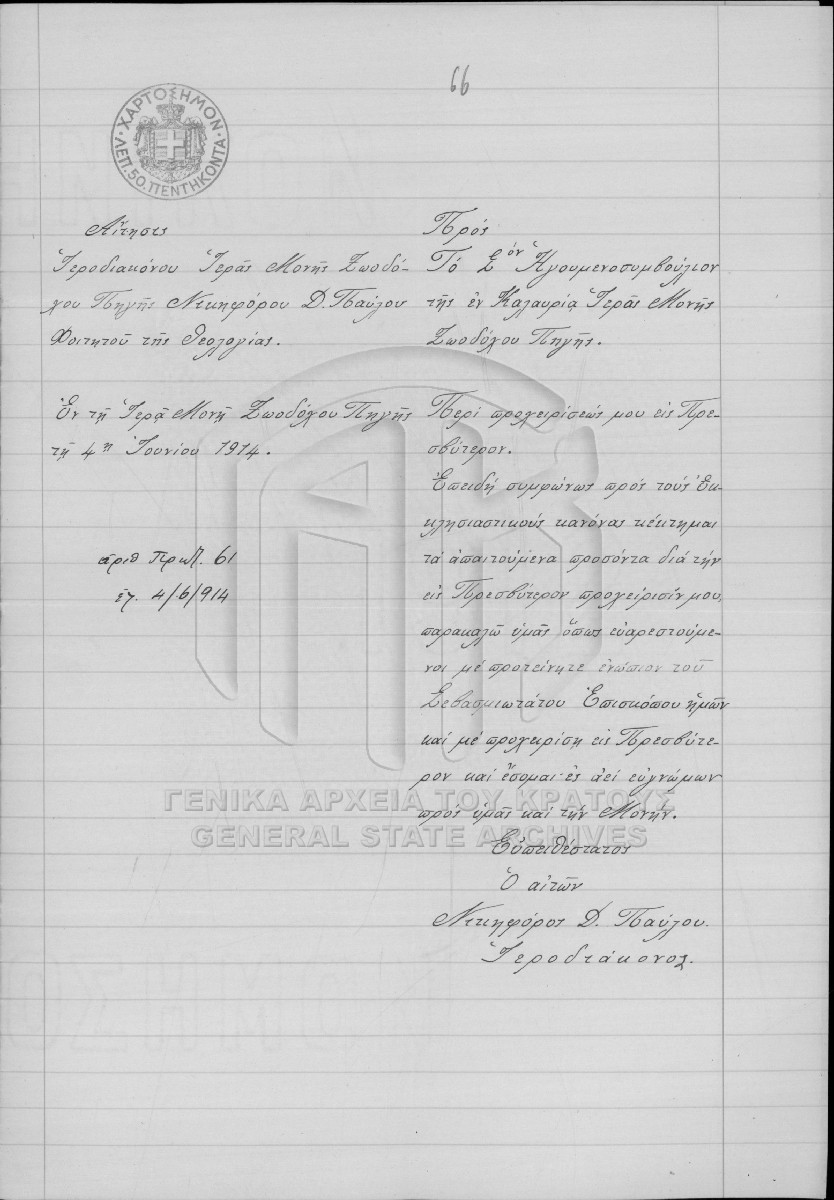 66
ΧΑΡΤΟΣΗΜΟΝ
ΛΕΠ. 50. ΠΕΝΤΗΚΟΝΤΑ
Αἴτησις
Ἱεροδιακόνου Ἱερᾶς Μονῆς Ζωοδό-
χου Πηγῆς Νικηφόρου Δ. Παύλου
Φοιτητοῦ τῆς Θεολογίας.
Ἐν τῇ Ἱερᾷ Μονῇ Ζωοδόχου Πηγῆς
τῇ 4ῃ Ἰουνίου 1914.
ἀριθ Πρωτ. 61
ἐλ. 4/6/914
Πρός
Τό Σ^όν Ἡγουμενοσυμβούλιον
τῆς ἐν Καλαυρίᾳ Ἱερᾶς Μονῆς
Ζωοδόχου Πηγῆς.
Περί προχειρίσεώς μου εἰς Πρε-
σβύτερον.
Ἐπειδή συμφώνως πρός τούς Ἐκ-
κλησιαστικούς κανόνας κέκτημαι
τά ἀπαιτούμενα προσόντα διά τήν
εἰς Πρεσβύτερον προχείρισίν μου,
παρακαλῶ ὑμᾶς ὅπως εὐαρεστούμε-
νοι μέ προτείνητε ἐνώπιον τοῦ
Σεβασμιωτάτου Ἐπισκόπου ἡμῶν
καί μέ προχειρίσῃ εἰς Πρεσβύτε-
ρον καί ἔσομαι ἐς ἀεί εὐγνώμων
πρός ὑμᾶς καί τήν Μονήν.
Εὐπειθέστατος
Ὁ αἰτῶν
Νικηφόρος Δ. Παύλου.
Ἱεροδιάκονος.
ΓΕΝΙΚΑ ΑΡΧΕΙΑ ΤΟΥ ΚΡΑΤΟΥΣ
GENERAL STATE ARCHIVES